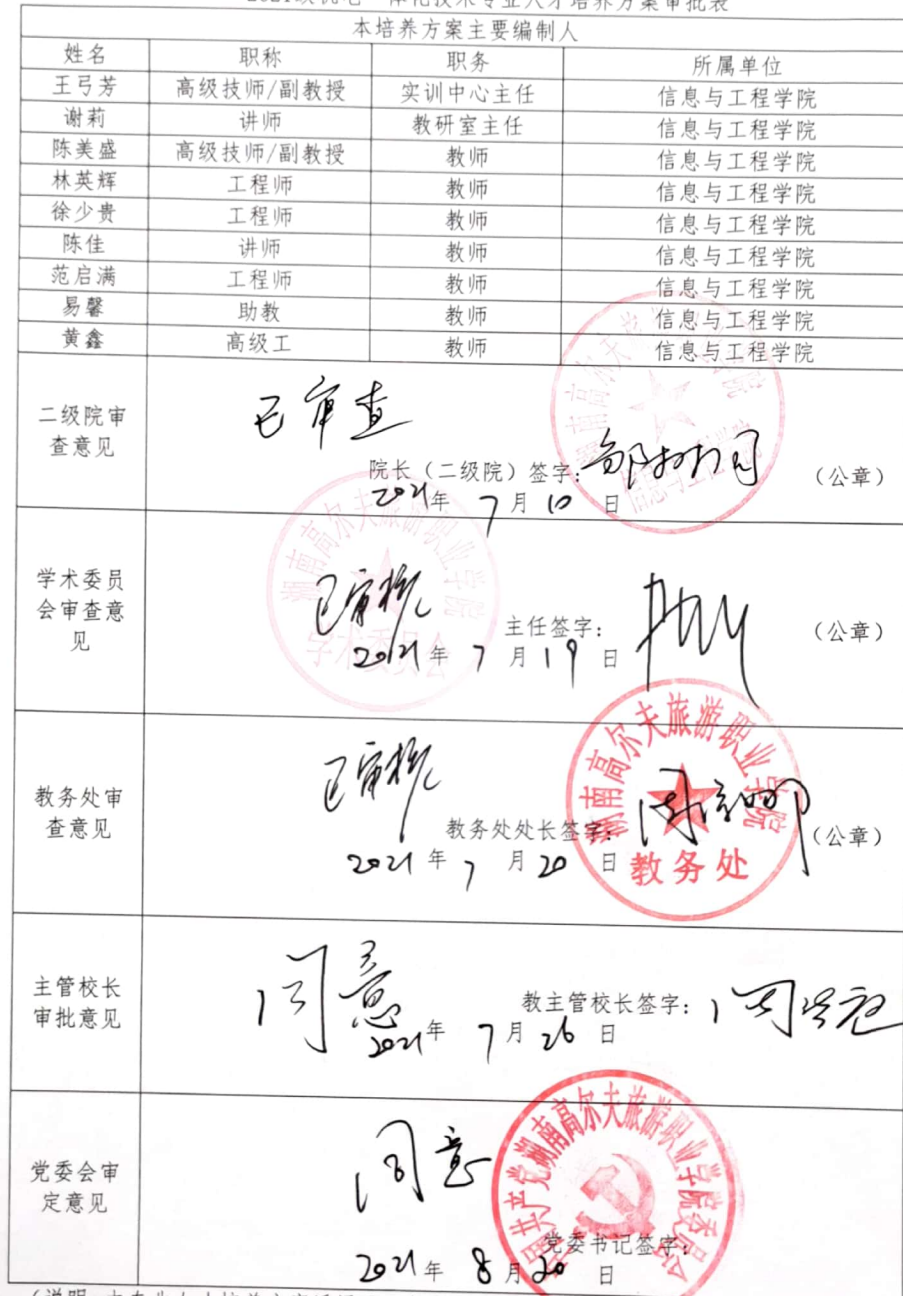 2021级机电一体化技术专业人才培养方案审批表
本培养方案主要编制人
姓名 职称 职务 所属单位
王弓芳 高级技师/副教授 实训中心主任 信息与工程学院
谢莉 讲师 教研室主任 信息与工程学院
陈美盛 高级技师/副教授 教师 信息与工程学院
林英辉 工程师 教师 信息与工程学院
徐少贵 工程师 教师 信息与工程学院
陈佳 讲师 教师 信息与工程学院
范启满 工程师 教师 信息与工程学院
易馨 助教 教师 信息与工程学院
黄鑫 高级工 教师 信息与工程学院
二级院审
查意见
已审查
院长（二级院）签字: （公章）
2021年 7月10 日
湖南高尔夫旅游职业学院
信息与工程学院
学术委员
会审查意
见
已审核
主任签字: （公章）
2021年 7月19日
湖南高尔夫旅游职业学院
学术委员会
教务处审
查意见
已审核
教务处处长签字: （公章）
2021年 7月20日
湖南高尔夫旅游职业学院
教务处
主管校长
审批意见
同意
教主管校长签字:
2021年 7月26日
党委会审
定意见
同意
党委书记签字:
2021年 8月20日
中国共产党湖南高尔夫旅游职业学院委员会